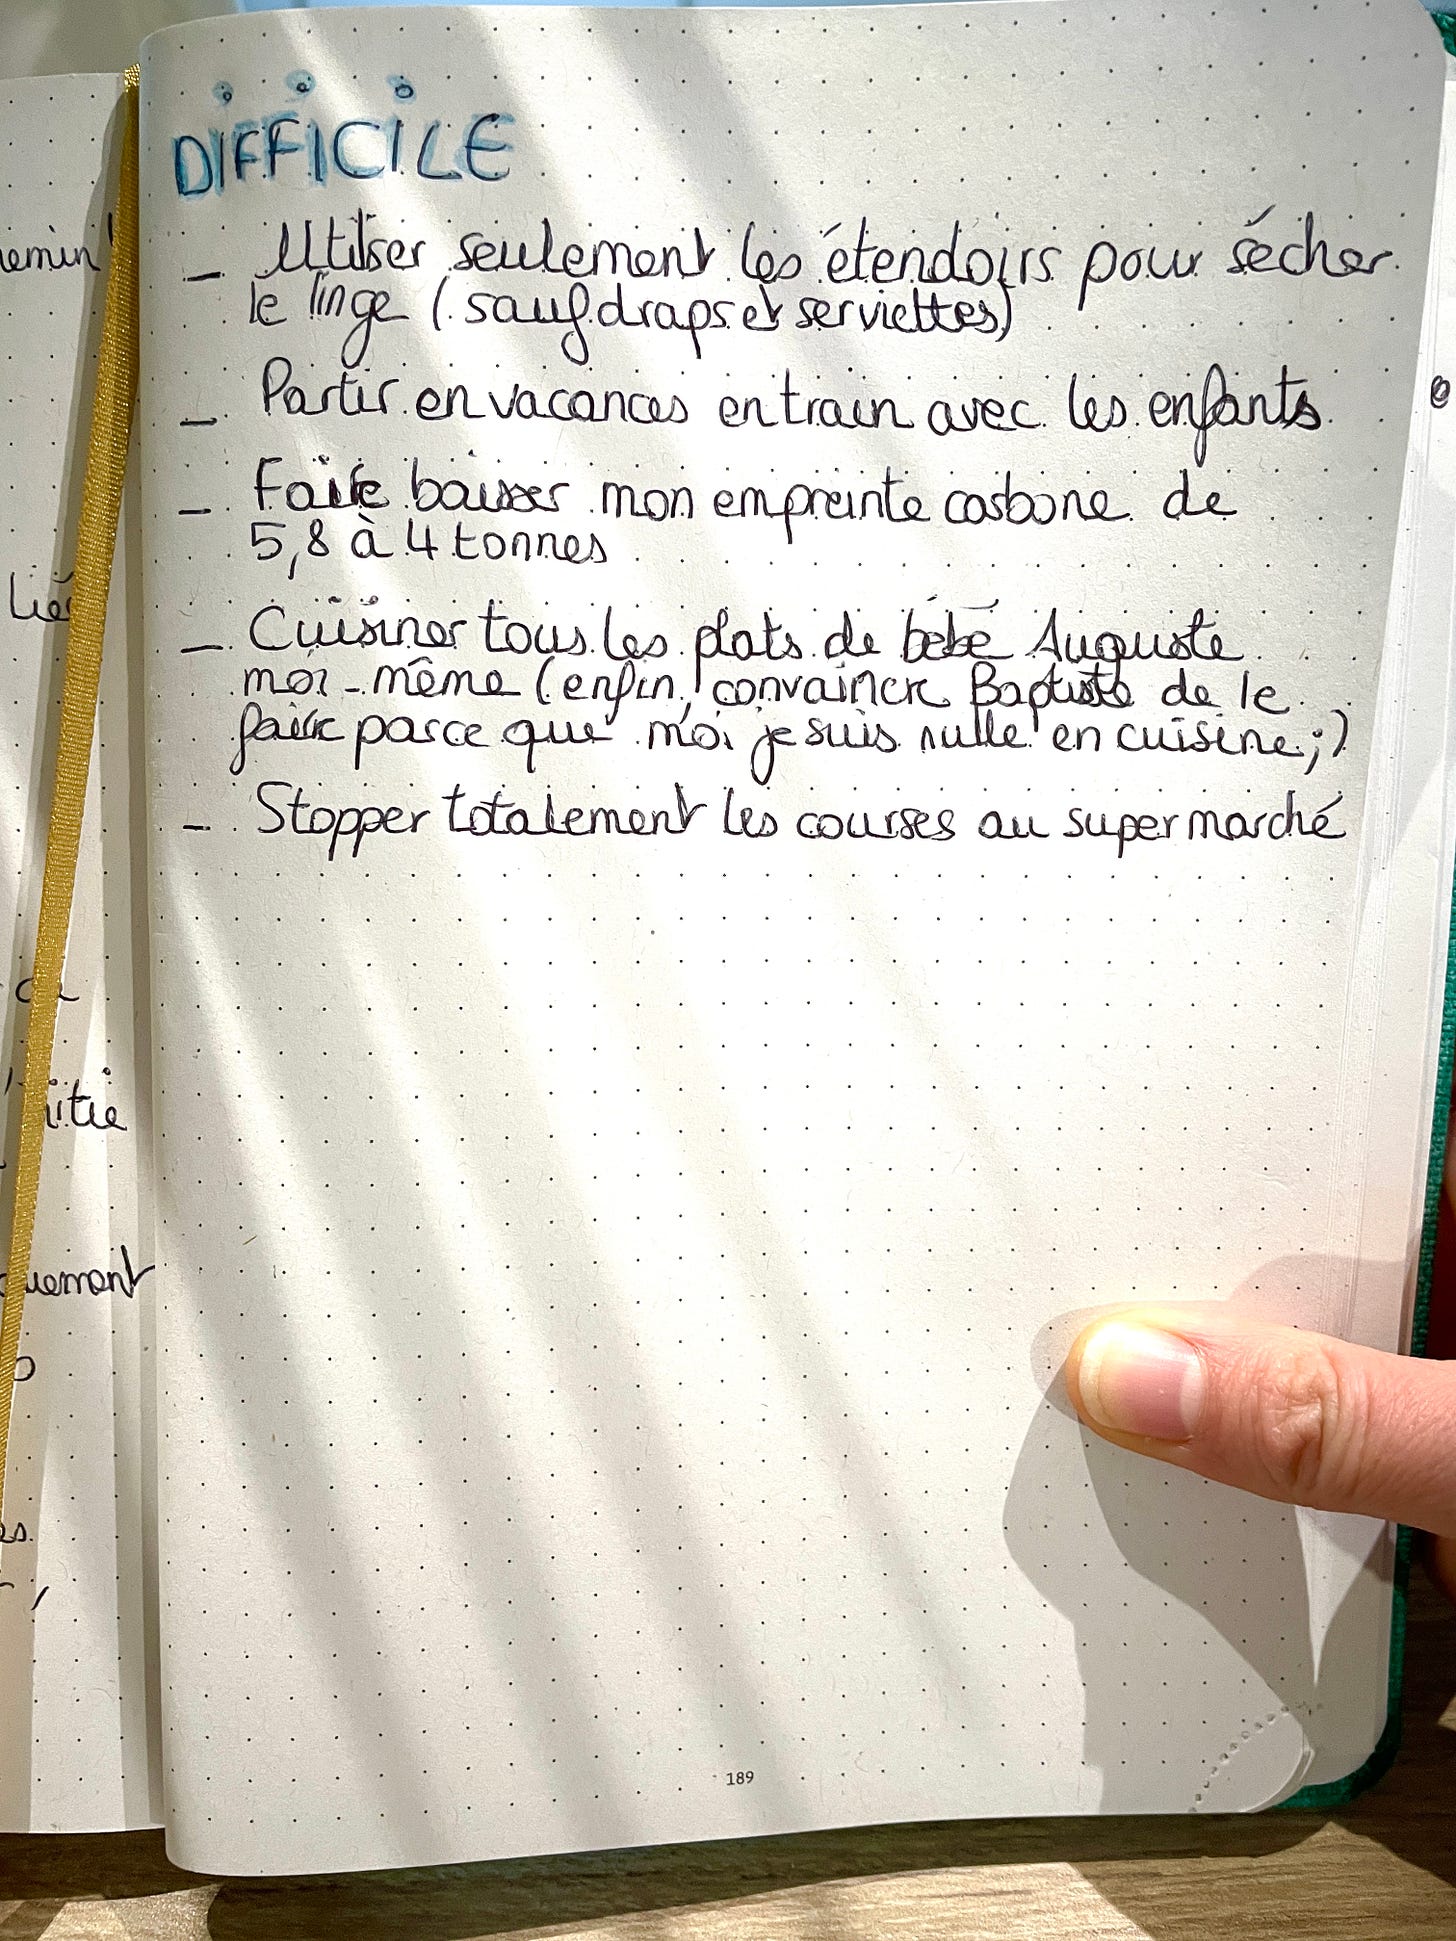 DIFFICILE
- Utiliser seulement les étendoirs pour sécher
le linge (sauf draps et serviettes)
- Partir en vacances en train avec les enfants
- Faire baisser mon empreinte carbone de
5,8 à 4 tonnes
- Cuisiner tous les plats de bébé Auguste
moi-même (enfin, convaincre Baptiste de le
faire parce que moi je suis nulle en cuisine ;)
- Stopper totalement les courses au supermarché
189